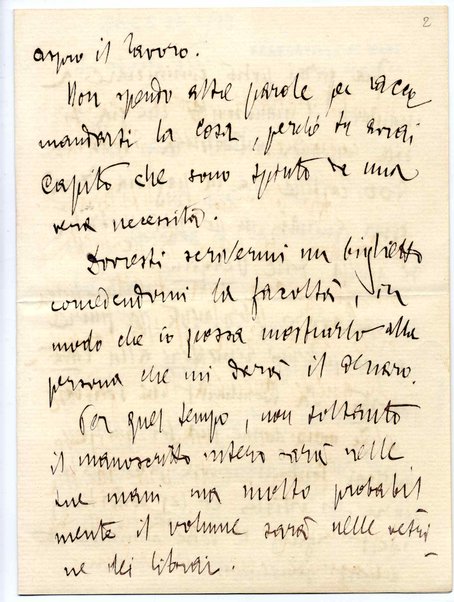 2
aspro il lavoro.
Non spendo altre parole per racco
mandarti la cosa, perché tu avrai
capito che sono spinto da una
vera necessità.
Dovresti scrivermi un biglietto
concedendomi la facoltà, in
modo che io possa mostrarlo alla
persona che mi darà il denaro.
Per quel tempo, non soltanto
il manoscritto intero sarà nelle
tue mani ma molto probabil
mente il volume sarà nelle vetri
ne dei librai.